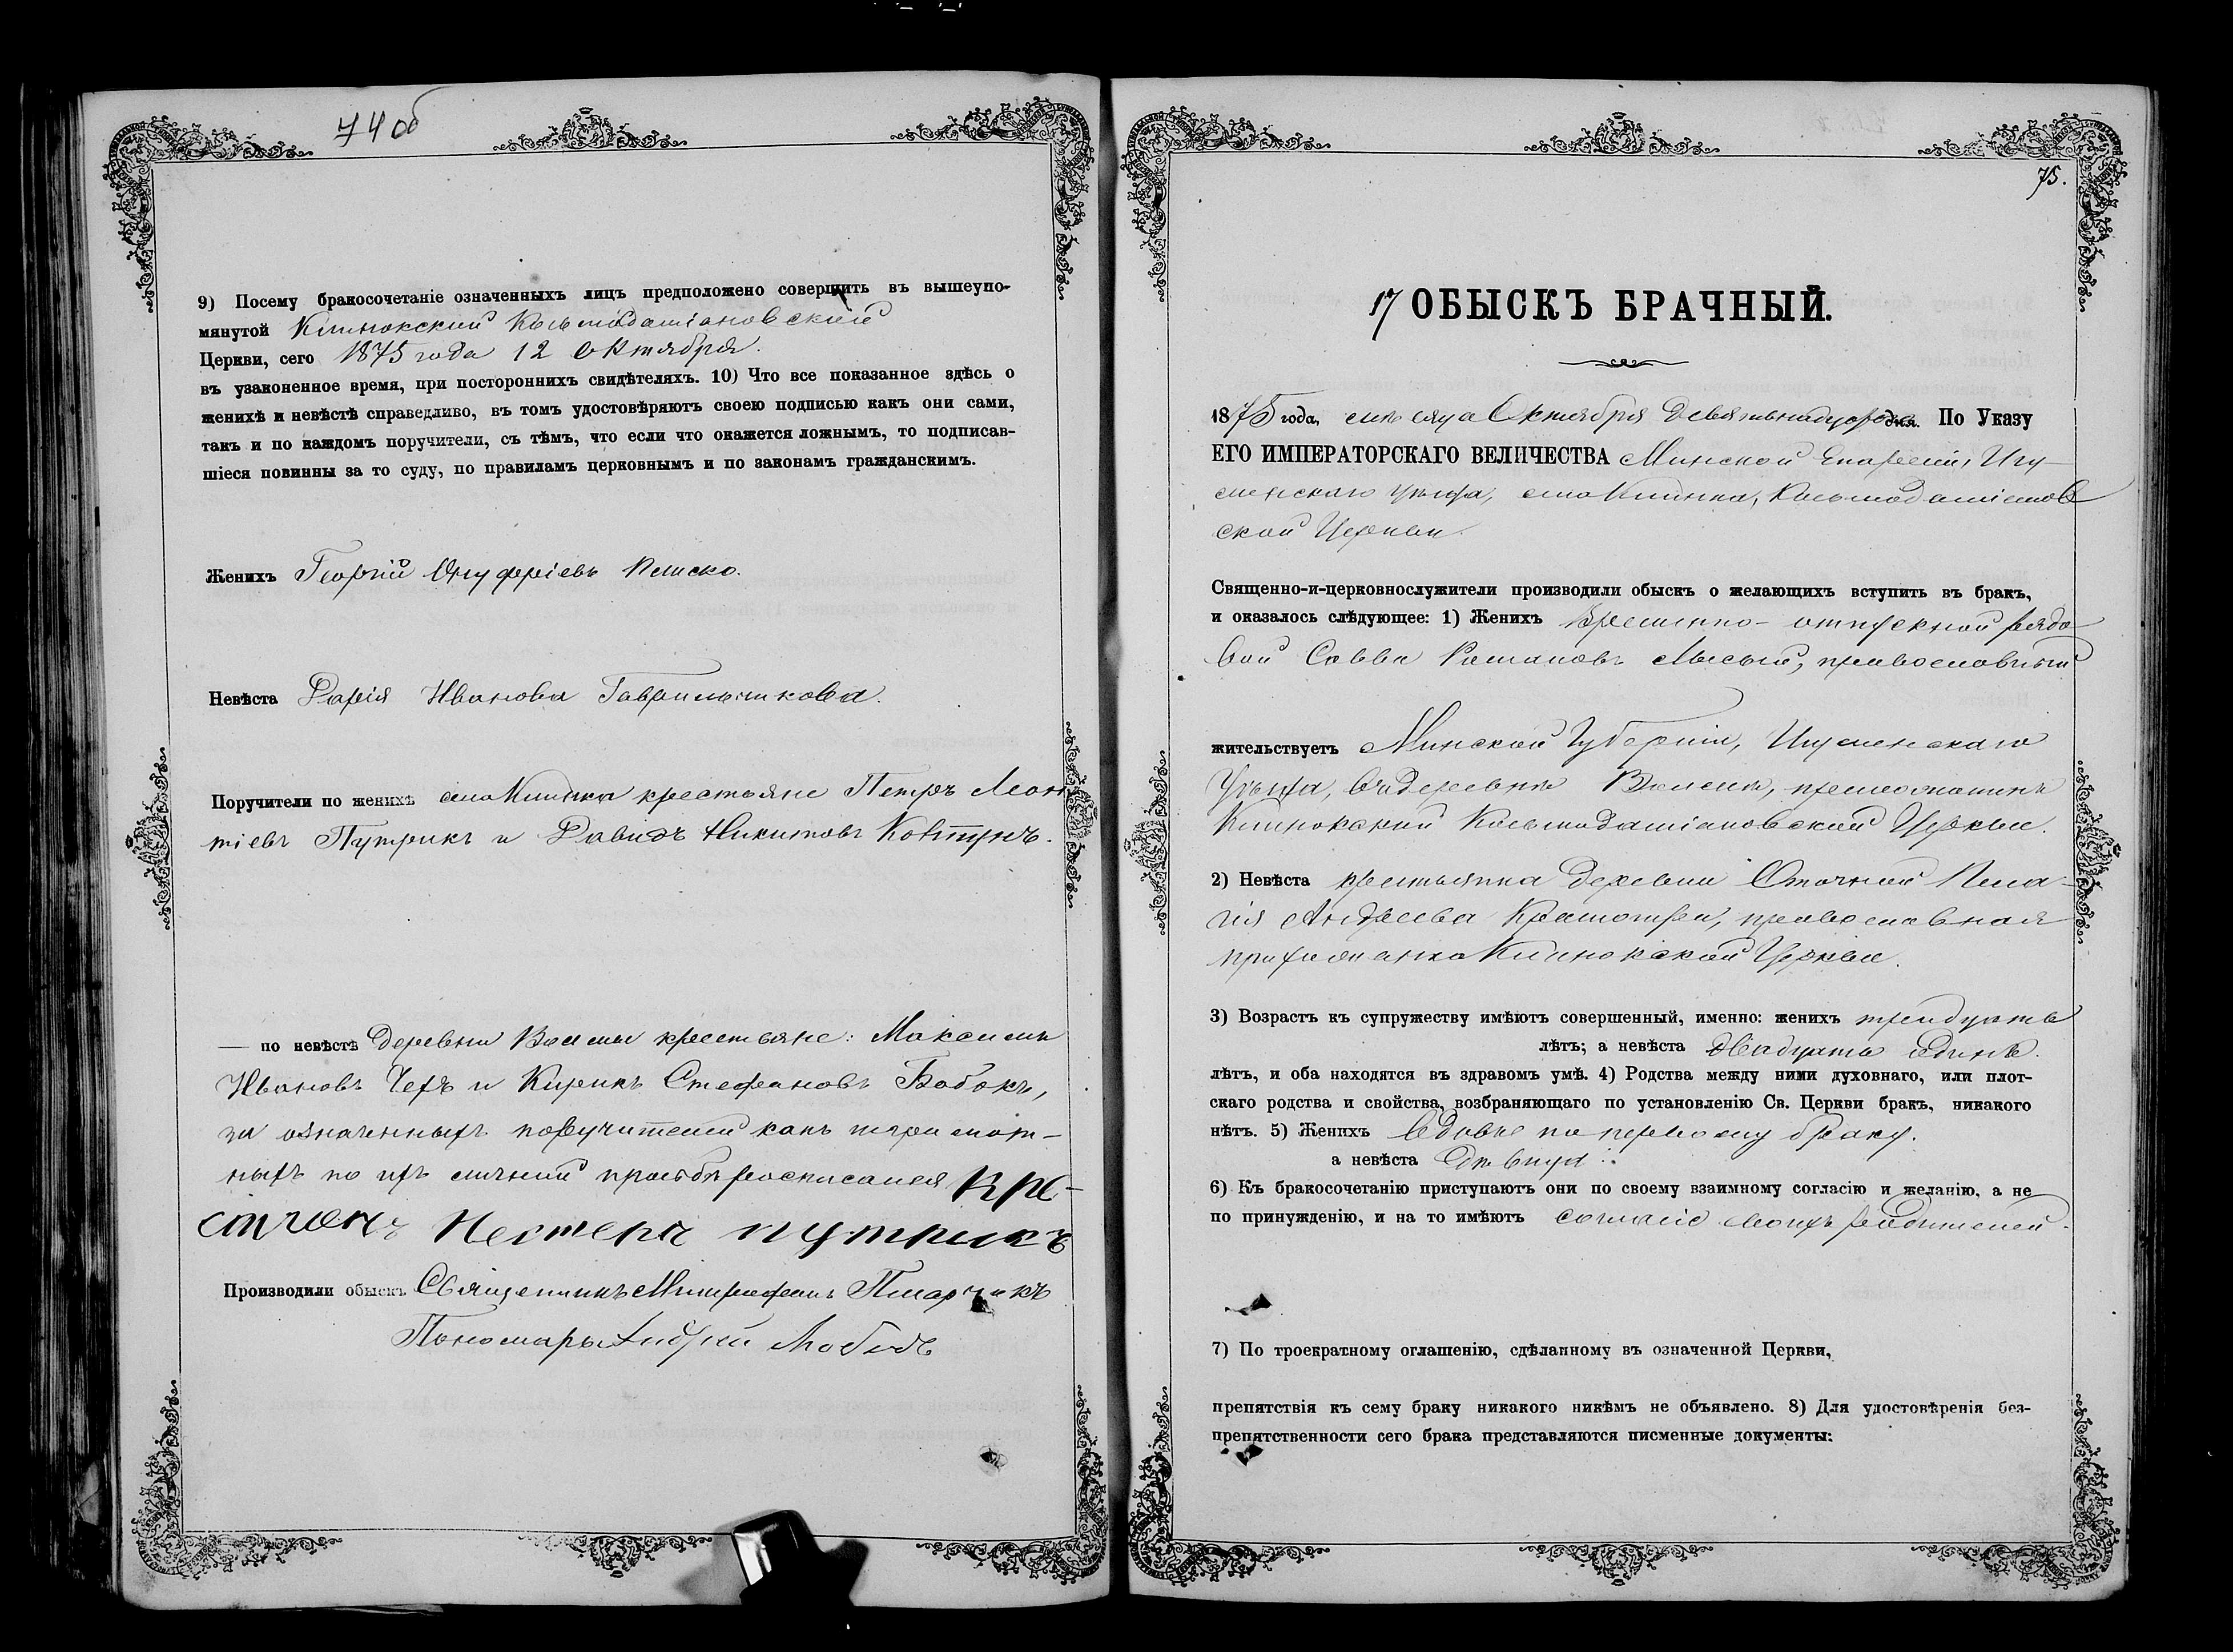 74 об
9) Посему бракосочетаніе означенныхъ лицъ предположено совершить въ вышеупо-
мянутой Клинокской Косьмодаміановской
Церкви, сего 1875 года 12 Октября.
въ узаконенное время, при постороннихъ свидѣтеляхъ. 10) Что все показанное здѣсь о
женихѣ и невѣстѣ справедливо, въ томъ удостовѣряютъ своею подписью какъ они сами,
такъ и по каждомъ поручители, съ тѣмъ, что если что окажется ложнымъ, то подписав-
шіеся повинны за то суду, по правиламъ церковнымъ и по законамъ гражданскимъ.
Женихъ Георгій Онуфріевъ
Невѣста Дарія Иванова Гаврильчикова.
Поручители по женихѣ села Клинка крестьяне Петръ Леон
тіевъ Путрикъ и Давидъ Никитовъ Ковтунъ.
— по невѣстѣ деревни крестьяне: Максимъ
Ивановъ и Кирикъ Стефановъ Бобокъ,
за означенныхъ поручителей какъ неграмот-
ныхъ по ихъ личной просьбѣ росписался Кре-
стянъ Нестеръ путрикъ
Производили обыскъ Священникъ Митрофанъ
Пономарь Андрей
75.
17 ОБЫСКЪ БРАЧНЫЙ.
1875 года, мѣсяца Октября дня. По Указу
ЕГО ИМПЕРАТОРСКАГО ВЕЛИЧЕСТВА Минской Епархіи, Игу-
менскаго уѣзда, села Клинка, Косьмодаміанов
ской Церкви.
Священно-и-церковнослужители производили обыскъ о желающихъ вступить въ бракъ,
и оказалось слѣдующее: 1) Женихъ Временно-отпускной рядо
вой Савва Романовъ Лысый, православный
жительствуетъ Минской Губерніи, Игуменскаго
Уѣзда, въ деревнѣ
Клинокской Косьмодаміановской Церкви.
2) Невѣста крестьянка деревни Пела-
гія Андреева православная
прихожанка Клинокской Церкви.
3) Возрастъ къ супружеству имѣютъ совершенный, именно: женихъ тридцать
лѣтъ; а невѣста двадцать одинъ.
лѣтъ, и оба находятся въ здравомъ умѣ. 4) Родства между ними духовнаго, или плот-
скаго родства и свойства, возбраняющаго по установленію Св. Церкви бракъ, никакого
нѣтъ. 5) Женихъ вдовъ по первому браку.
а невѣста дѣвица.
6) Къ бракосочетанію приступаютъ они по своему взаимному согласію и желанію, а не
по принужденію, и на то имѣютъ согласіе своихъ родителей.
7) По троекратному оглашенію, сдѣланному въ означенной Церкви,
препятствія къ сему браку никакого никѣмъ не объявлено. 8) Для удостовѣренія без-
препятственности сего брака представляются писменные документы: